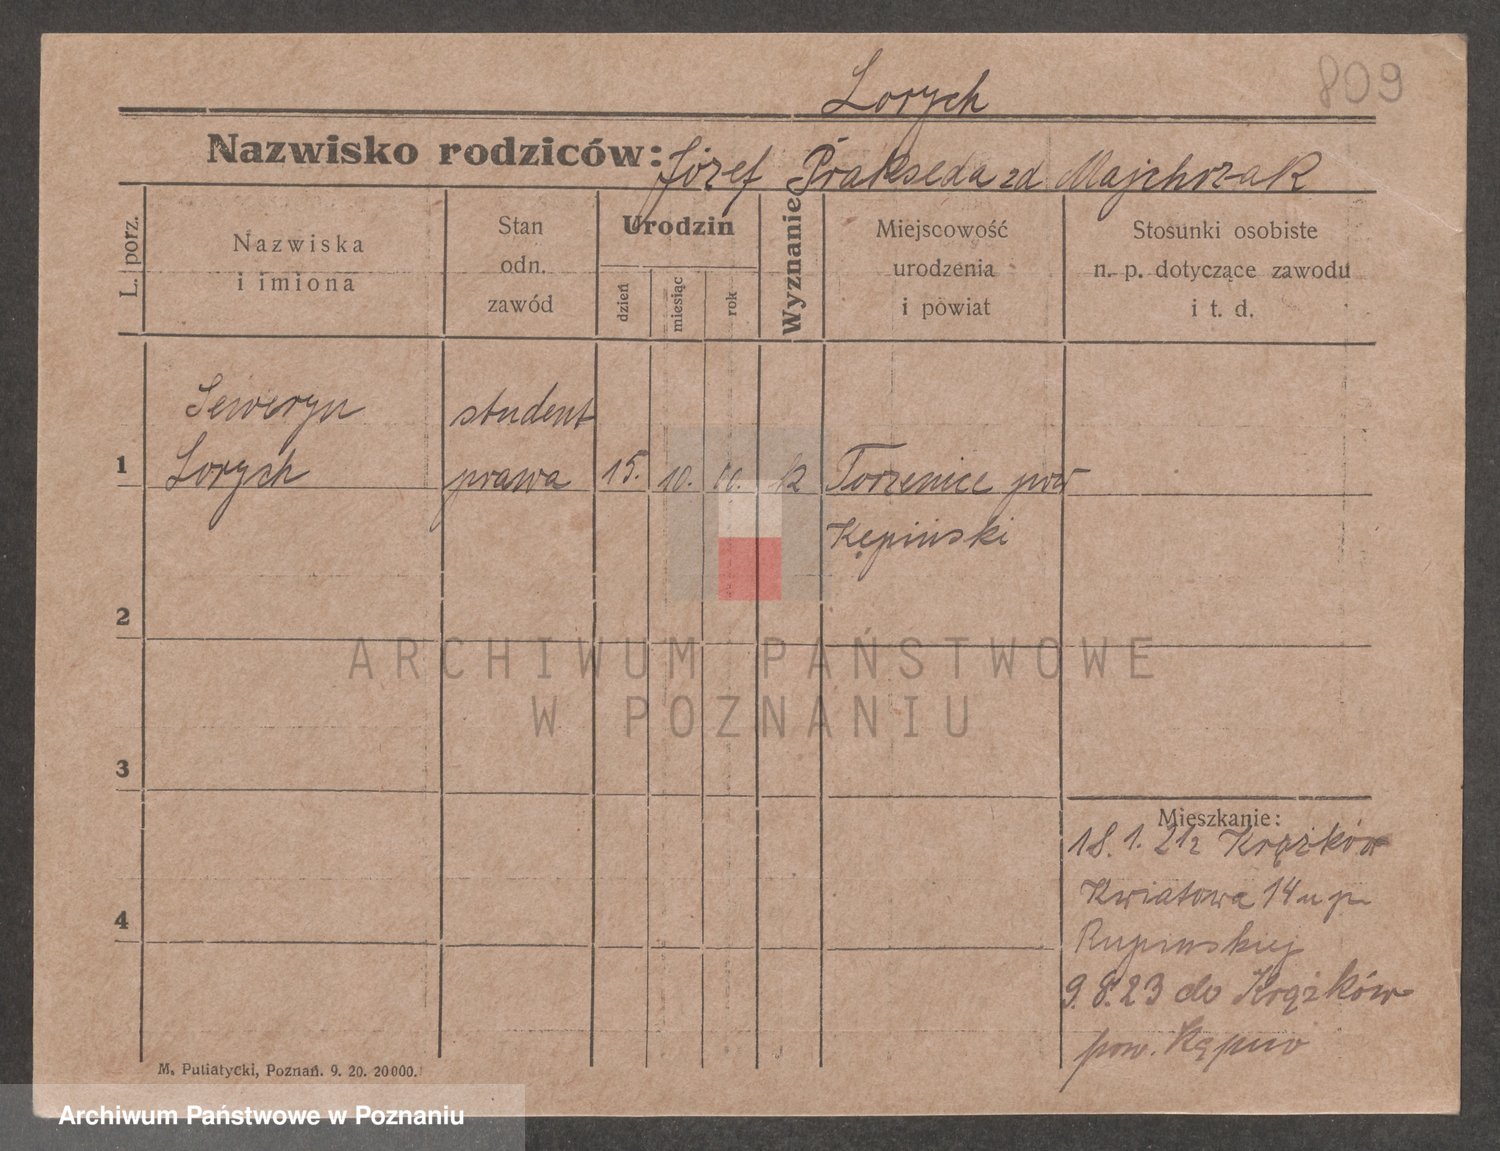 Lorych
809
Nazwisko rodziców: Józef Prakseda zd Majchrzak
L. porz.
Nazwiska
i imiona
Stan
odn.
zawód
Urodzin
dzień
miesiąc
rok
Wyznanie
Miejscowość
urodzenia
i powiat
Stosunki osobiste
n. p. dotyczące zawodu
i t. d.
Seweryn student
1 Lorych prawa 15. 10. 00. k Torzenice pow
Kępiński
2
ARCHIWUM PAŃSTWOWE
W POZNANIU
3
Mieszkanie:
18. 1. 21 z Krążków
Kwiatowa 14 u p.
4
Rupińskiej
9. 8. 23 do Krążków
pow. Kępno
M. Putiatycki, Poznań. 9. 20. 20000.
Archiwum Państwowe w Poznaniu